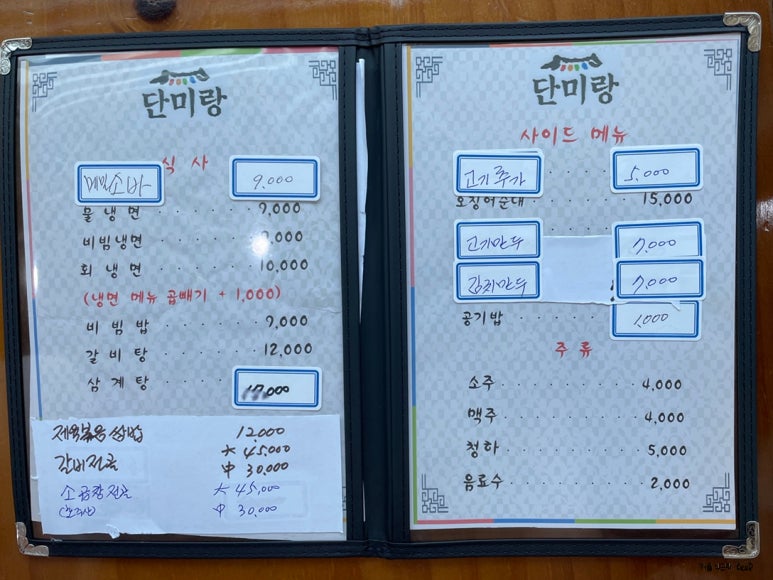 단미랑
식 사
메밀소바 9.000
물 냉 면 9,000
비빔냉면 9,000
회 냉 면 10,000
(냉면 메뉴 곱빼기 + 1,000)
비 빔 밥 9,000
갈 비 탕 12,000
삼 계 탕 ,000
제육볶음 쌈밥 12,000
갈비전골 大 45,000
中 30,000
소곱창전골 大 45,000
中 30,000
단미랑
사이드 메뉴
고기 추가 5.000
오징어순대 15,000
고기만두 7,000
김치만두 7,000
공기밥 1,000
주 류
소주 4,000
맥주 4,000
청하 5,000
음료수 2,000